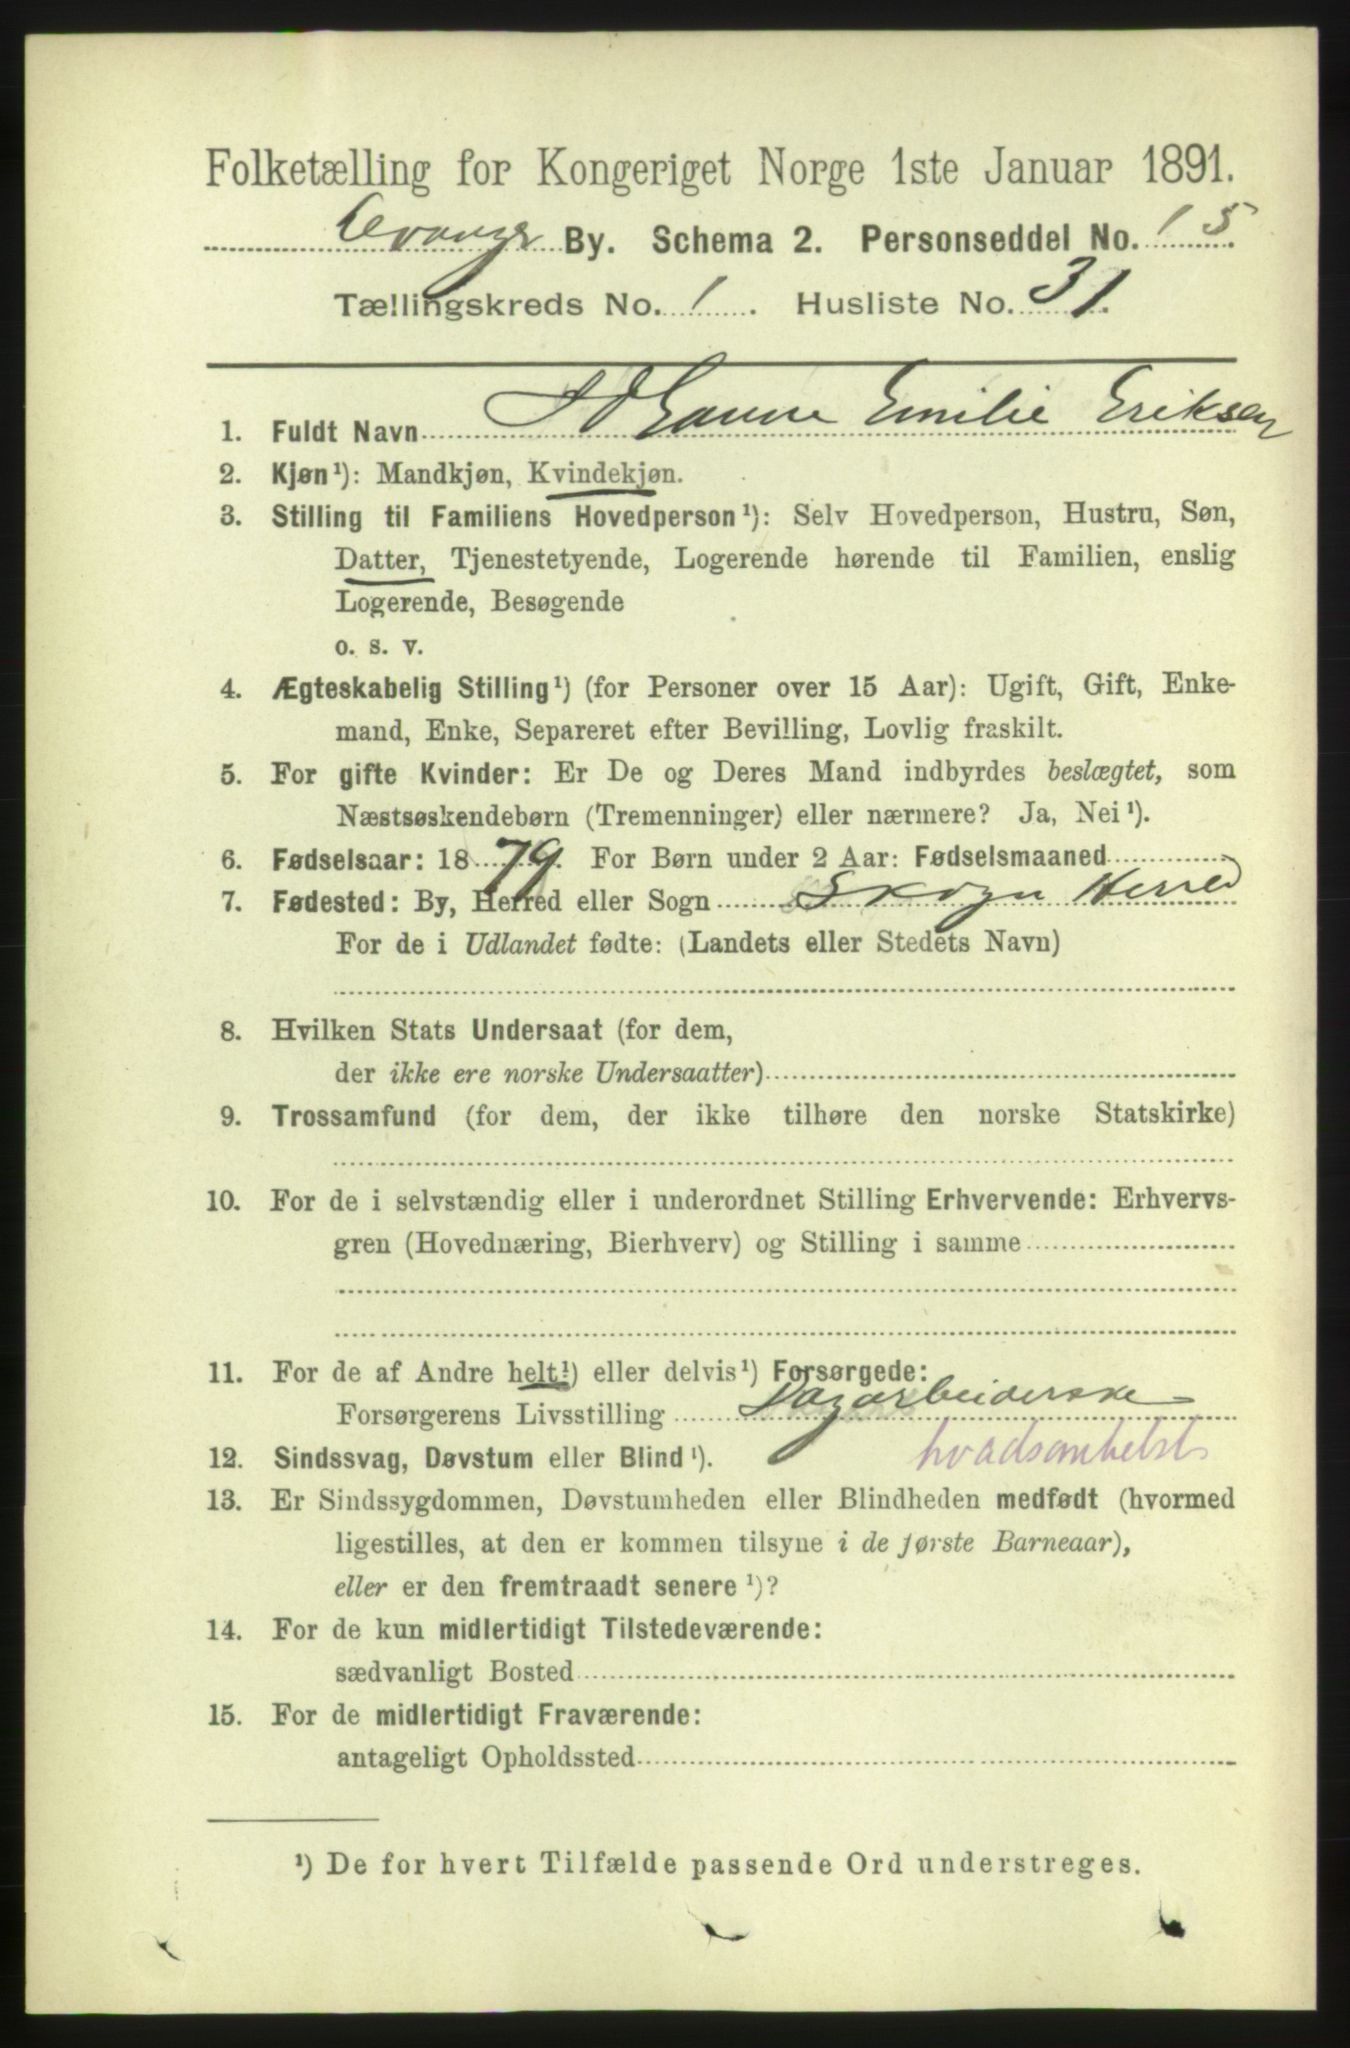 Folketælling for Kongeriget Norge 1ste Januar 1891.
Levanger By. Schema 2. Personseddel No. 15.
Tællingskreds No. 1. Husliste No. 31.
1. Fuldt Navn Johanne Emilie Eriksen
2. Kjøn¹): Mandkjøn, Kvindekjøn.
3. Stilling til Familiens Hovedperson¹): Selv Hovedperson, Hustru, Søn,
Datter, Tjenestetyende, Logerende hørende til Familien, enslig
Logerende, Besøgende
o. s. v.
4. Ægteskabelig Stilling¹) (for Personer over 15 Aar): Ugift, Gift, Enke-
mand, Enke, Separeret efter Bevilling, Lovlig fraskilt.
5. For gifte Kvinder: Er De og Deres Mand indbyrdes beslægtet, som
Næstsøskendebørn (Tremenninger) eller nærmere? Ja, Nei¹).
6. Fødselsaar: 1879. For Børn under 2 Aar: Fødselsmaaned
7. Fødested: By, Herred eller Sogn Skogn Herred
For de i Udlandet fødte: (Landets eller Stedets Navn)
8. Hvilken Stats Undersaat (for dem,
der ikke ere norske Undersaatter)
9. Trossamfund (for dem, der ikke tilhøre den norske Statskirke)
10. For de i selvstændig eller i underordnet Stilling Erhvervende: Erhvervs-
gren (Hovednæring, Bierhverv) og Stilling i samme
11. For de af Andre helt¹) eller delvis¹) Forsørgede:
Forsørgerens Livsstilling Dagarbeiderske
hvadsomhelst
12. Sindssvag, Døvstum eller Blind¹).
13. Er Sindssygdommen, Døvstumheden eller Blindheden medfødt (hvormed
ligestilles, at den er kommen tilsyne i de første Barneaar),
eller er den fremtraadt senere¹)?
14. For de kun midlertidigt Tilstedeværende:
sædvanligt Bosted
15. For de midlertidigt Fraværende:
antageligt Opholdssted
¹) De for hvert Tilfælde passende Ord understreges.